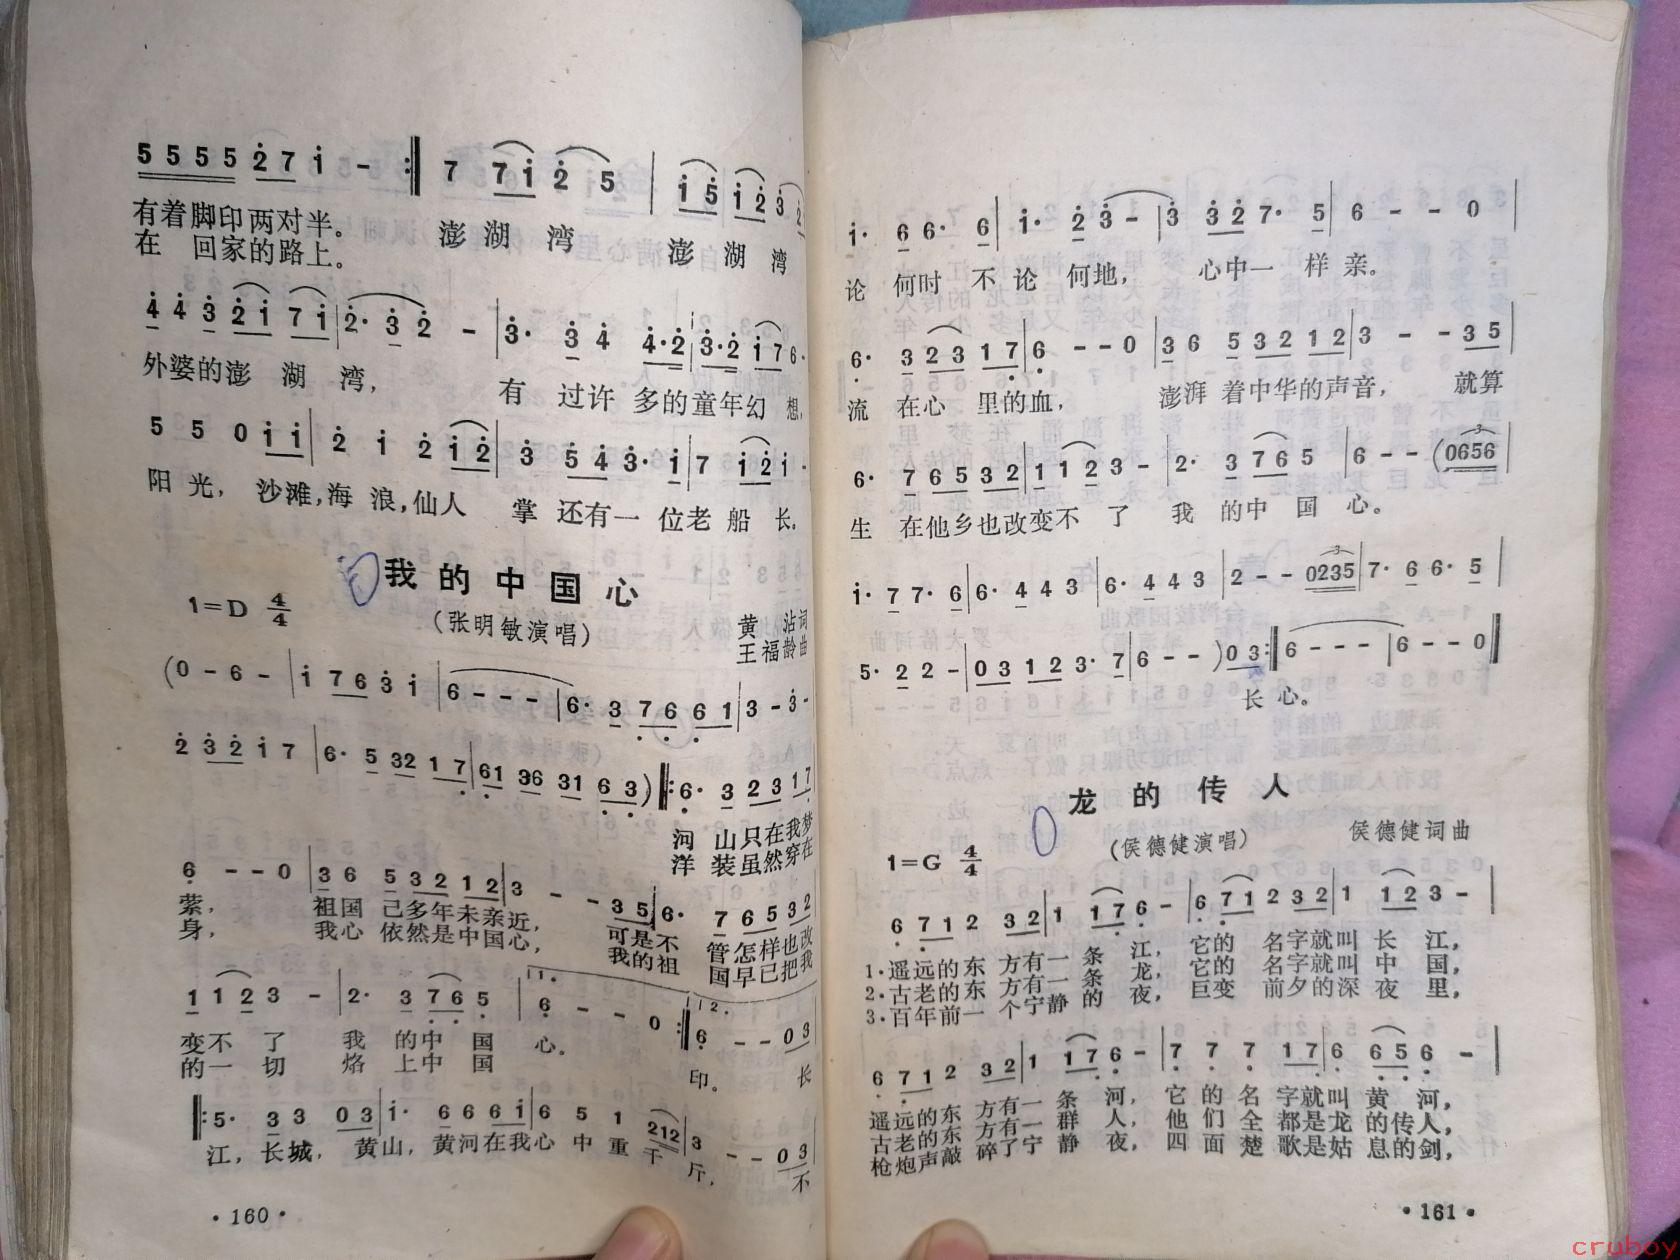 有着脚印两对半。 澎湖湾 澎湖湾
在 回家的路上。
外婆的澎湖湾, 有过许多的童年幻想,
阳光,沙滩,海浪,仙人掌还有一位老船长。
我的中国心
1=D 4/4
(张明敏演唱)
黄沾词
王福龄曲
(0-6-|i763i|6---|6·37661|3-3-
23217|6·53217|61 36 31 63)‖:6·32317
河山只在我梦
洋装虽然穿在
6--0|3653212|3--35|6·76532
萦, 祖国已多年未亲近, 可是不管怎样也改
身, 我心依然是中国心, 我的祖国早已把我
1123-|2·3765|6--0:‖6--03
变不了 我的中国心。
的一切 烙上中国 印。 长
‖:5·3303|i·666i|6512123--03
江,长城, 黄山,黄河在我心中重千斤, 不
·160·
论何时不论何地, 心中一样亲。
流在心里的血, 澎湃着中华的声音, 就算
生在他乡也改变不了我的中国心。
i·77·6|6·443|6·443|2--0235|7·66·5
5·22-|03123·7|6--)03:‖6---|6--0‖
长心。
龙的传人
1=G 4/4
(侯德健演唱)
侯德健词曲
6712 32|1 176-|671232|1 123-
1·遥远的东方有一条江, 它的名字就叫长江,
2·古老的东方有一条龙, 它的名字就叫中国,
3·百年前一个宁静的夜, 巨变前夕的深夜里,
6712 32|1 176-|77717|6656-
遥远的东方有一条河, 它的名字就叫黄河,
古老的东方有一群人, 他们全都是龙的传人,
枪炮声敲碎了宁静夜, 四面楚歌是姑息的剑,
·161·
cruboy